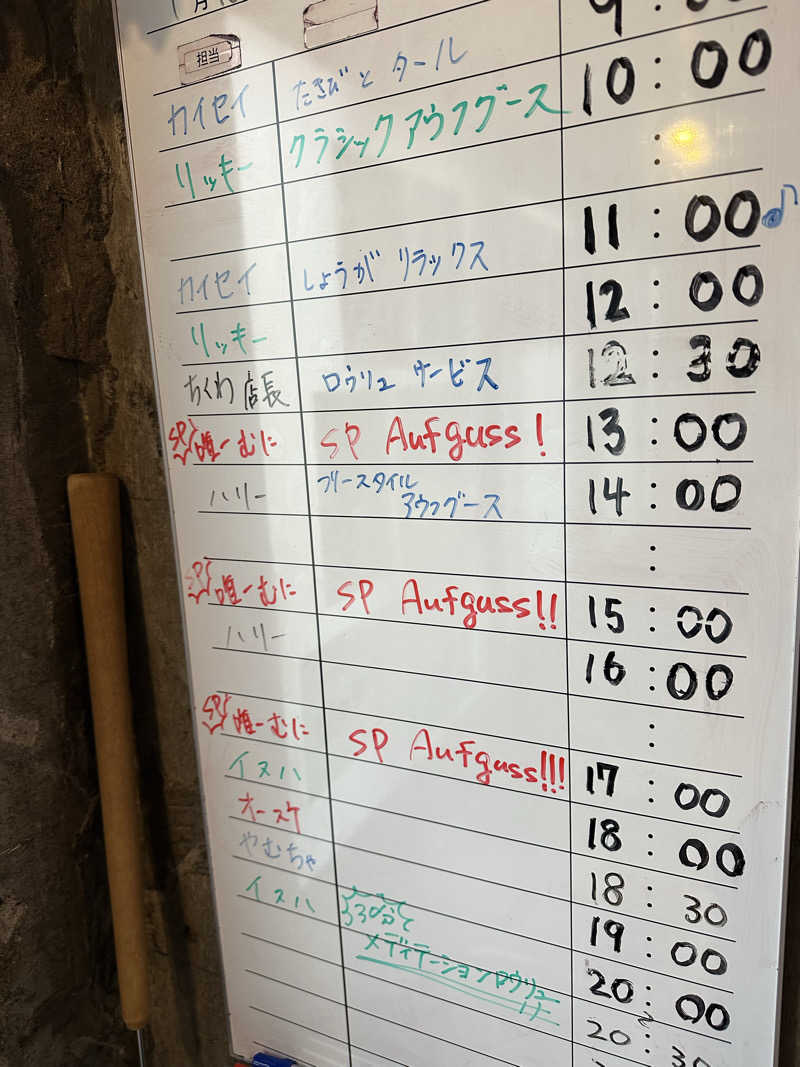 月
担当
カイセイ たきびと タール 9:
リッキー クラシックアウフグース 10:00
:
カイセイ しょうが リラックス 11:00♪
リッキー 12:00
ちくわ店長 ロウリュ サービス 12:30
SP 唯一むに SP Aufguss! 13:00
ハリー フリースタイル
アウフグース 14:00
:
SP 唯一むに SP Aufguss!! 15:00
ハリー 16:00
:
SP 唯一むに SP Aufguss!!! 17:00
イヌハ 18:00
オースケ 18:30
やむちゃ 19:00
イヌハ 30分で
メディテーションロウリュ 20:00
20:30